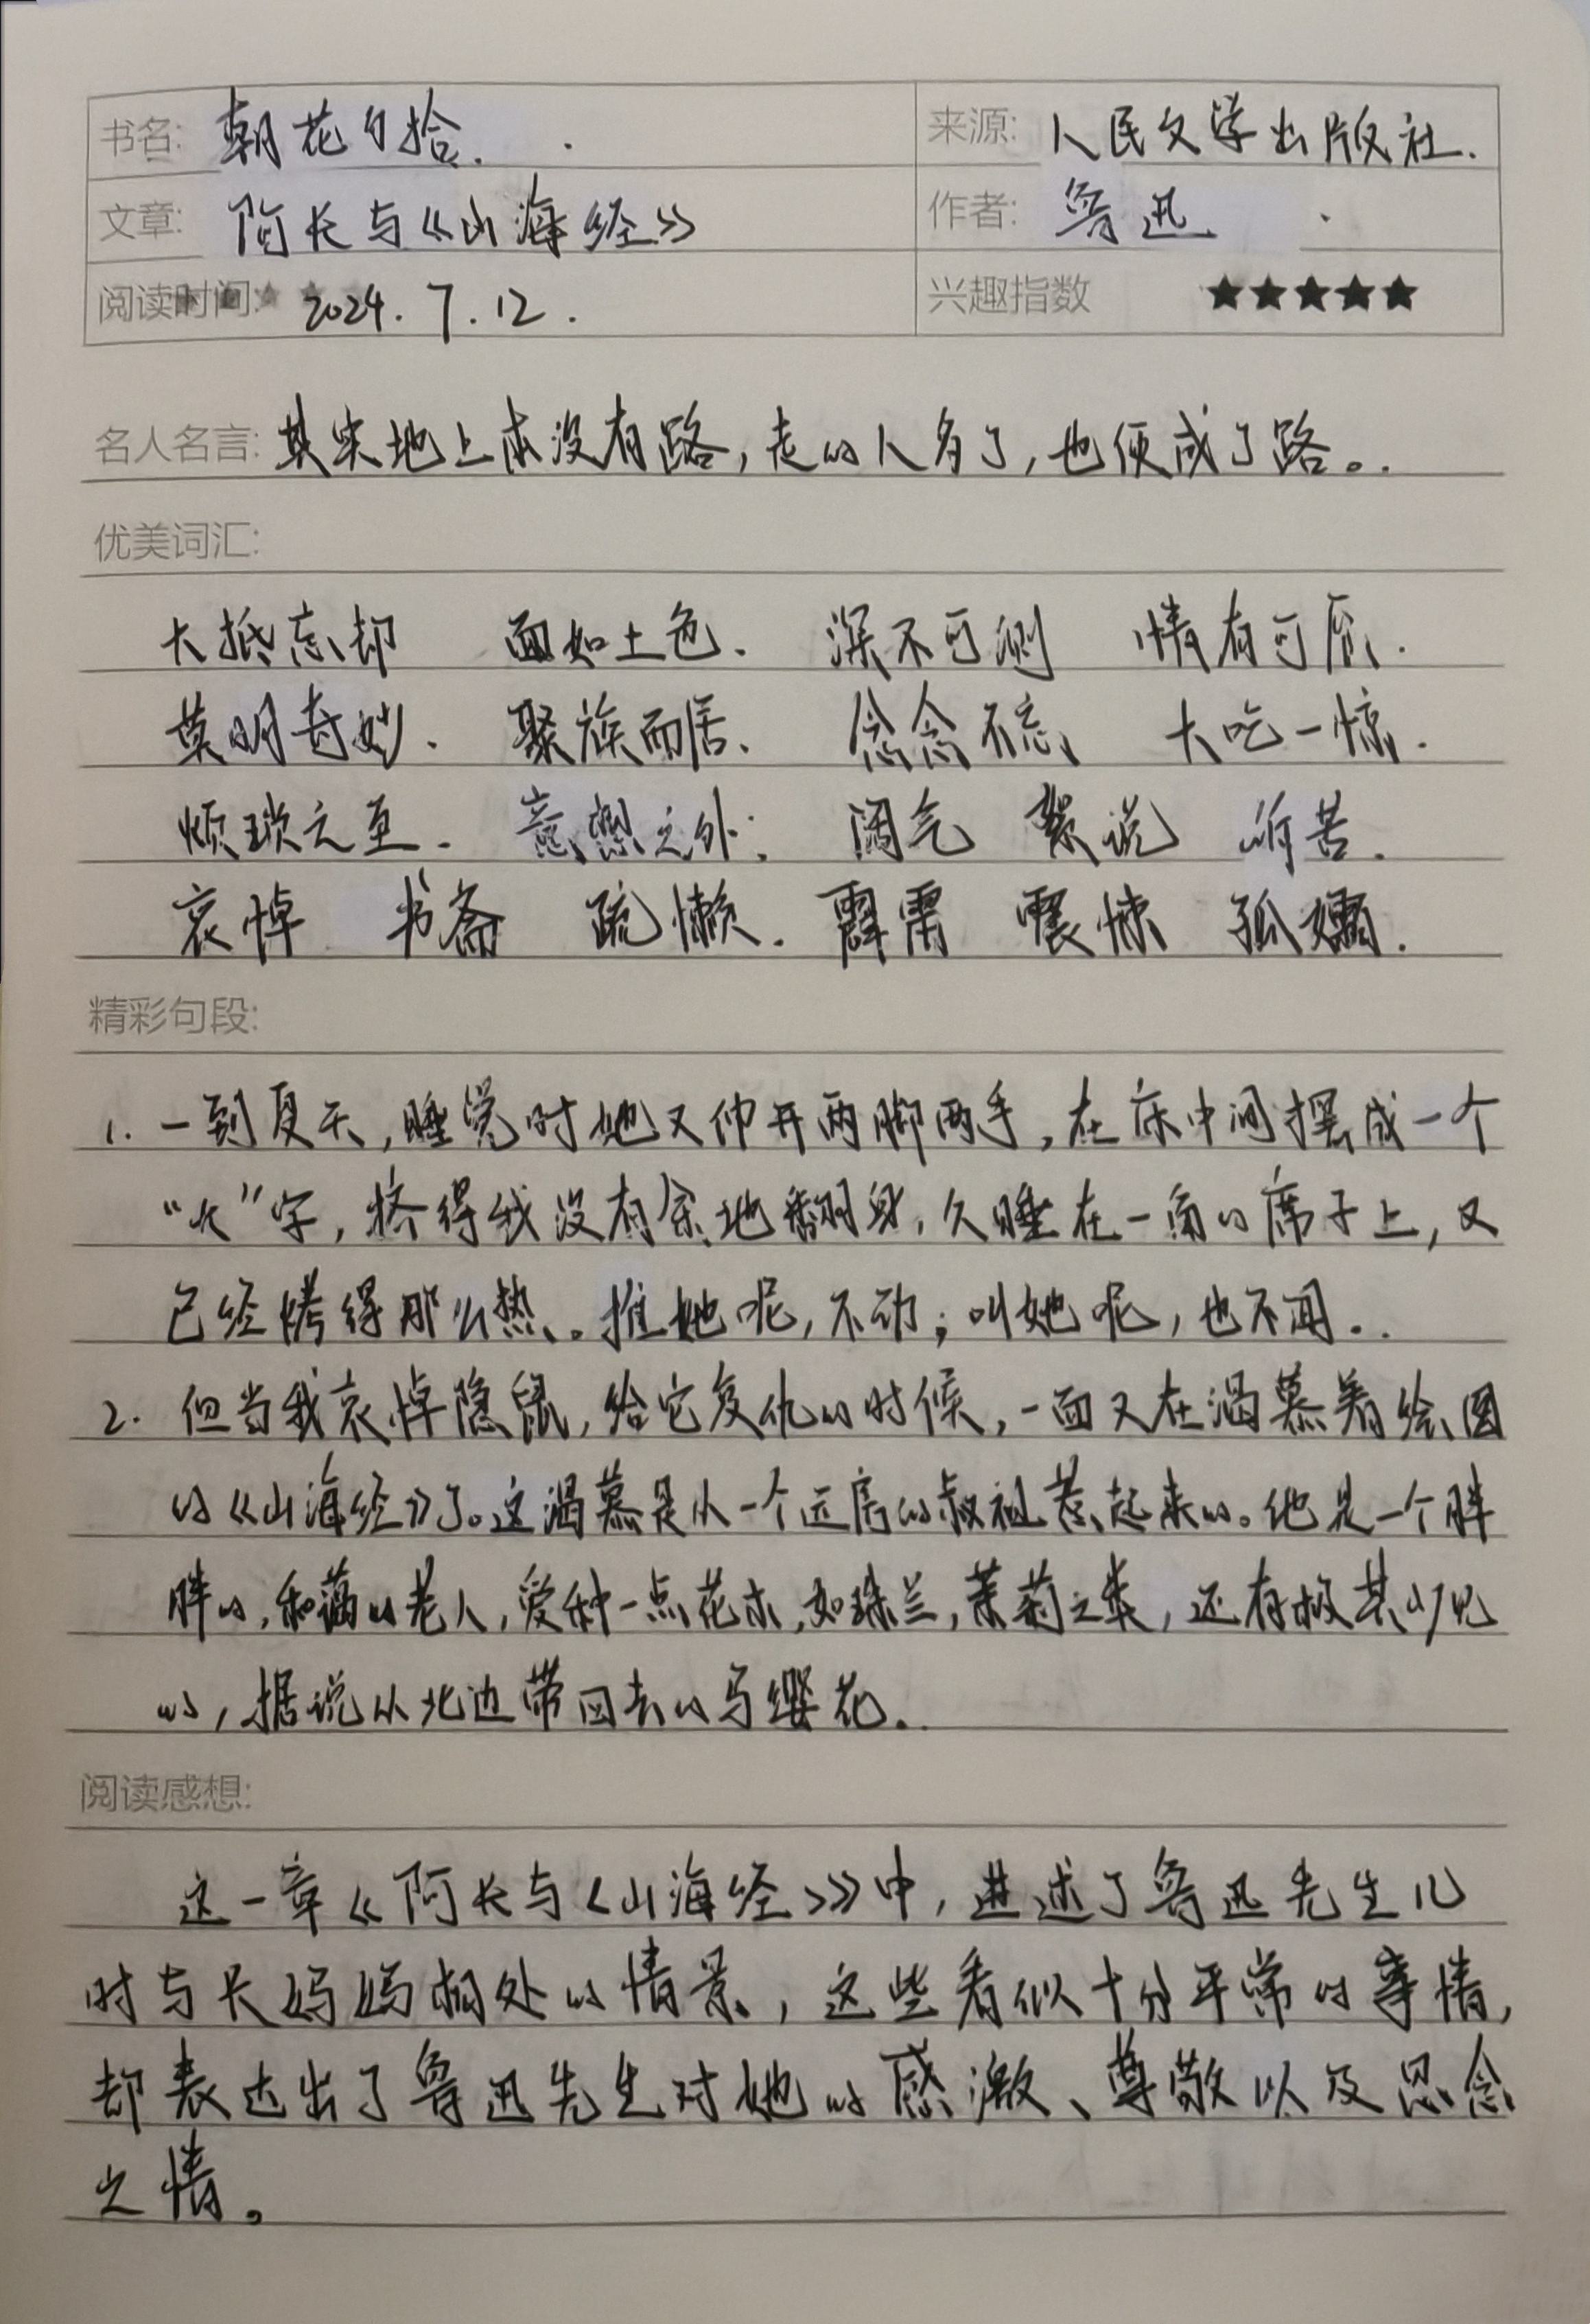 书名: 朝花夕拾. 来源: 人民文学出版社.
文章: 阿长与《山海经》 作者: 鲁迅
阅读时间: 2024.7.12. 兴趣指数 ★★★★★
名人名言: 其实地上本没有路,走的人多了,也便成了路。
优美词汇:
大抵忘却 面如土色、 深不可测 情有可原.
莫明奇妙. 聚族而居、 念念不忘、 大吃一惊.
烦琐之至. 意想之外; 阔气 絮说 听苦.
哀悼 书斋 疏懒. 霹雷 震悚 孤孀.
精彩句段:
1. 一到夏天,睡觉时她又伸开两脚两手,在床中间摆成一个
“大”字,挤得我没有余地翻身,久睡在一角的席子上,又
已经烤得那么热。推她呢,不动;叫她呢,也不闻..
2. 但当我哀悼隐鼠,给它复仇的时候,一面又在渴慕着绘图
的《山海经》了。这渴慕是从一个远房的叔祖惹起来的。他是一个胖
胖的,和蔼的老人,爱种一点花木,如珠兰,茉莉之类,还有极其少见
的,据说从北边带回去的马缨花..
阅读感想:
这一章《阿长与<山海经>》中,讲述了鲁迅先生儿
时与长妈妈相处的情景,这些看似十分平常的事情,
却表达出了鲁迅先生对她的感激、尊敬以及思念
之情。